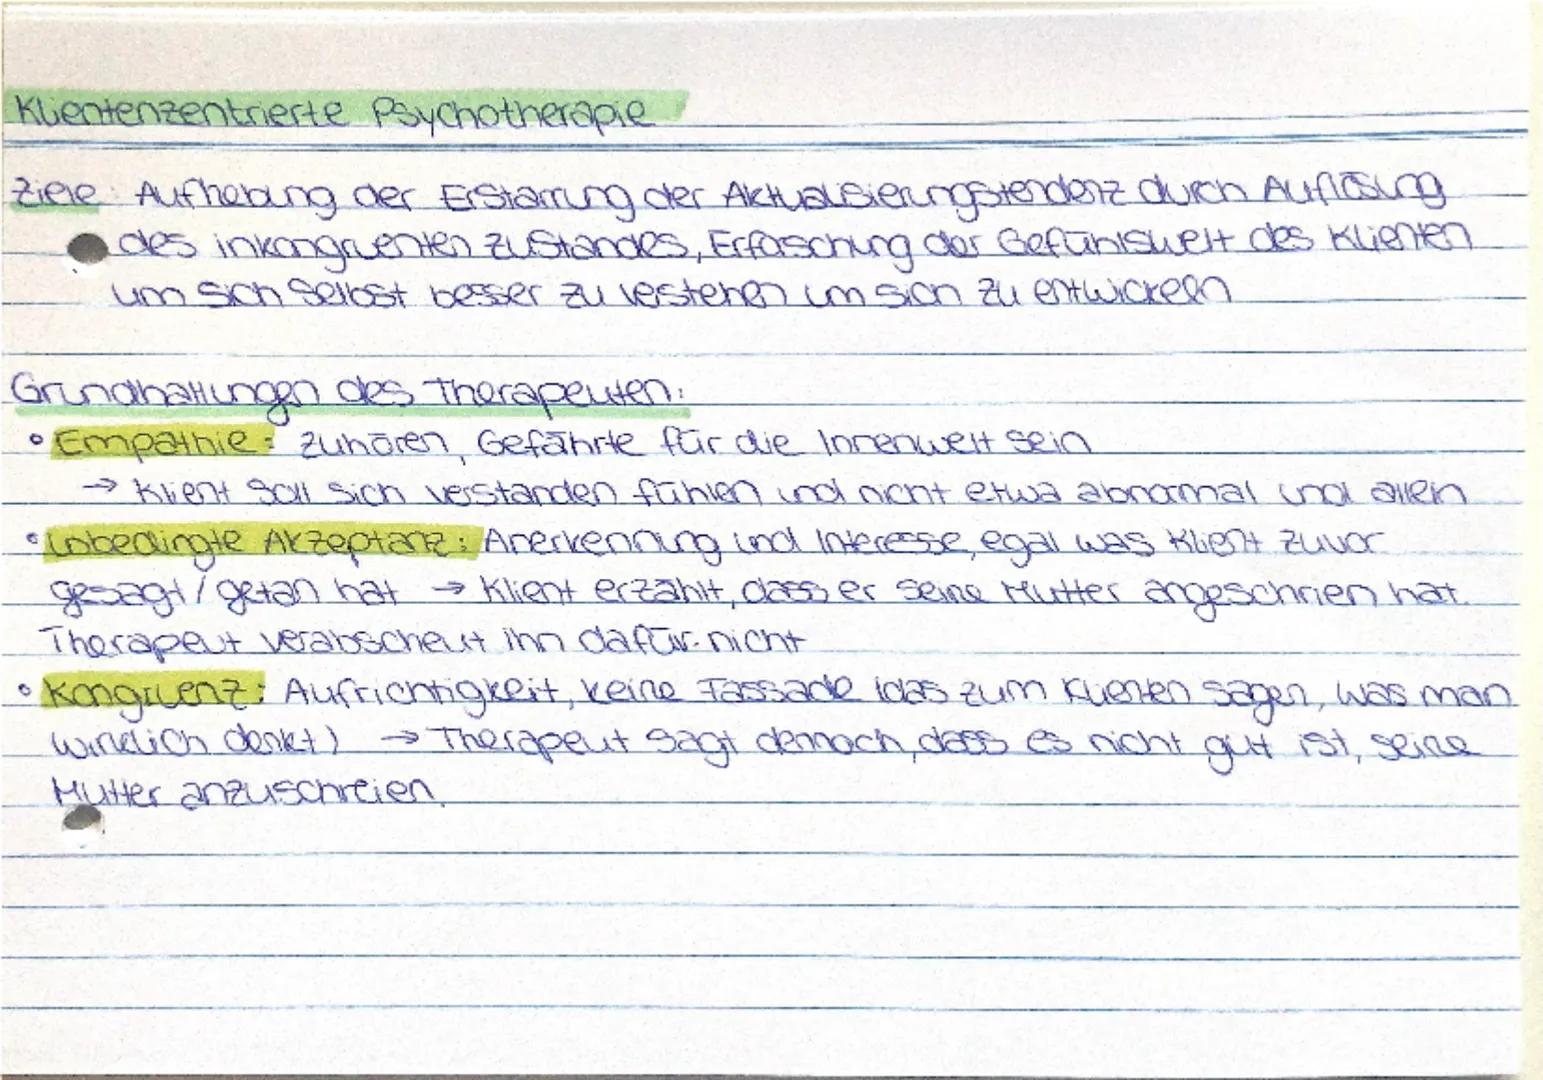 Klientenzentrierte Psychotherapie
Ziele: Aufhebung der Erstarrung der Aktualisierungstendenz durch Auflösung
des inkongruenten Zustandes, Erforschung der Gefühlswelt des Klienten
um sich selbst besser zu verstehen um sich zu entwickeln
Grundhaltungen des Therapeuten:
• Empathie: zuhören, Gefährte für die Innenwelt sein
→ Klient soll sich verstanden fühlen und nicht etwa abnormal und allein
• Unbedingte Akzeptanz: Anerkennung und Interesse, egal was Klient zuvor
gesagt / getan hat → Klient erzählt, dass er seine Mutter angeschrien hat.
Therapeut verabscheut ihn dafür nicht
• Kongruenz: Aufrichtigkeit, keine Fassade (das zum Klienten sagen, was man
wirklich denkt) → Therapeut sagt dennoch, dass es nicht gut ist, seine
Mutter anzuschreien.